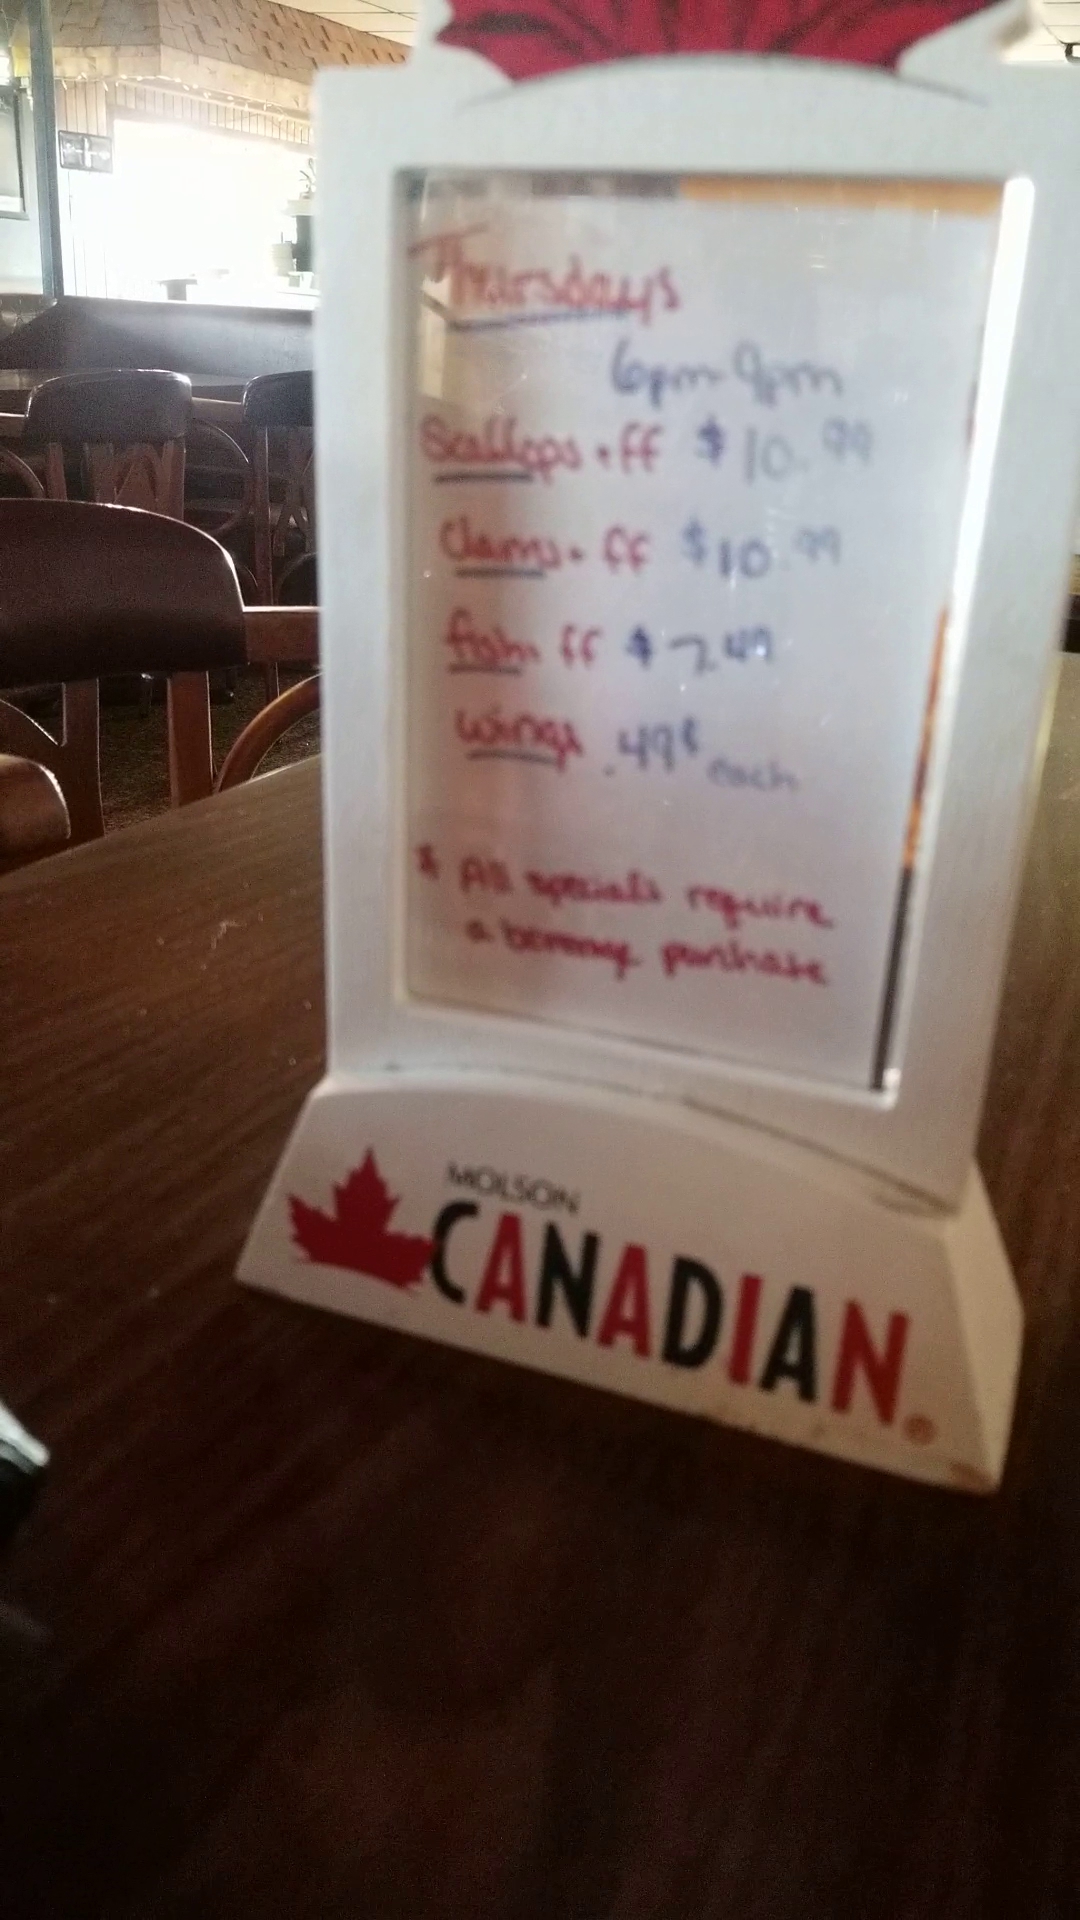 Thursdays
6pm-9pm
Scallops + ff $10.99
Clams + ff $10.99
fish ff $7.49
wings .49¢ each
* All specials require
a beverage purchase
MOLSON
CANADIAN®